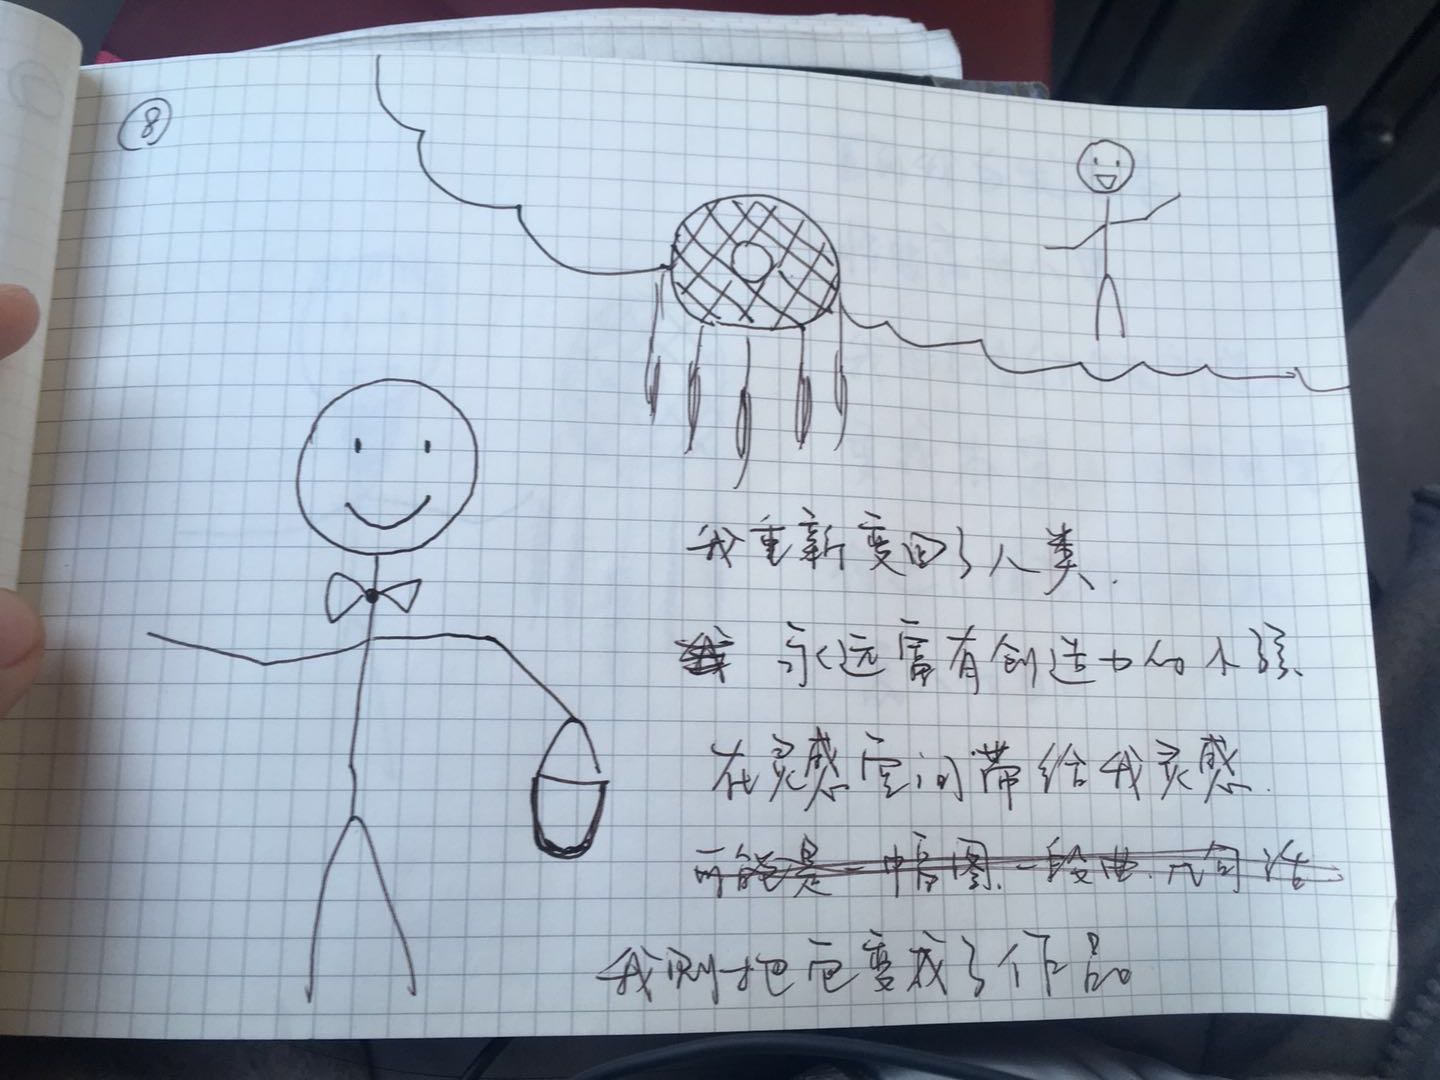 8
我重新变回了人类.
永远富有创造力的小孩、
在灵感空间带给我灵感.
可能是一幅图、一段曲、几句话
我则把它变成了作品